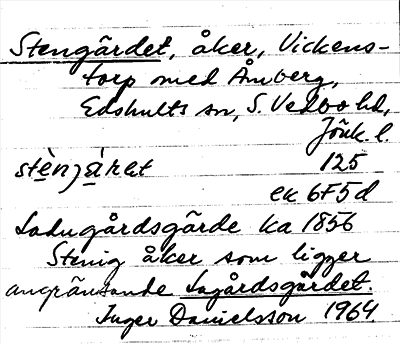 Stengärdet, åker, Vickens-
torp med Åmberg,
Edshults sn, S. Vedbo hd,
Jönk. l.
stènjä̀ṛet 125
ek 6F5d
Ladugårdsgärde ka 1856
Stenig åker som ligger
angränsande Lagårdsgärdet.
Inger Danielsson 1964